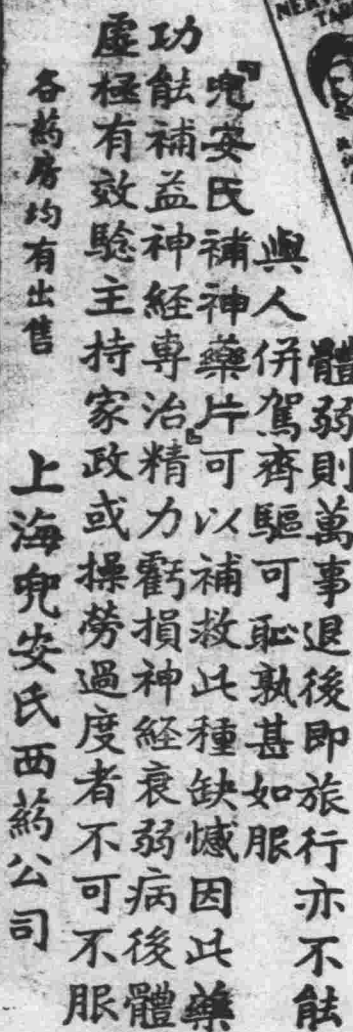 體弱則萬事退後即旅行亦不能
與人併駕齊驅可恥孰甚如服
『兜安氏補神藥片』可以補救此種缺憾因此藥
功能補益神經專治精力虧損神經衰弱病後體
虛極有效驗主持家政或操勞過度者不可不服
各葯房均有出售
上海兜安氏西葯公司